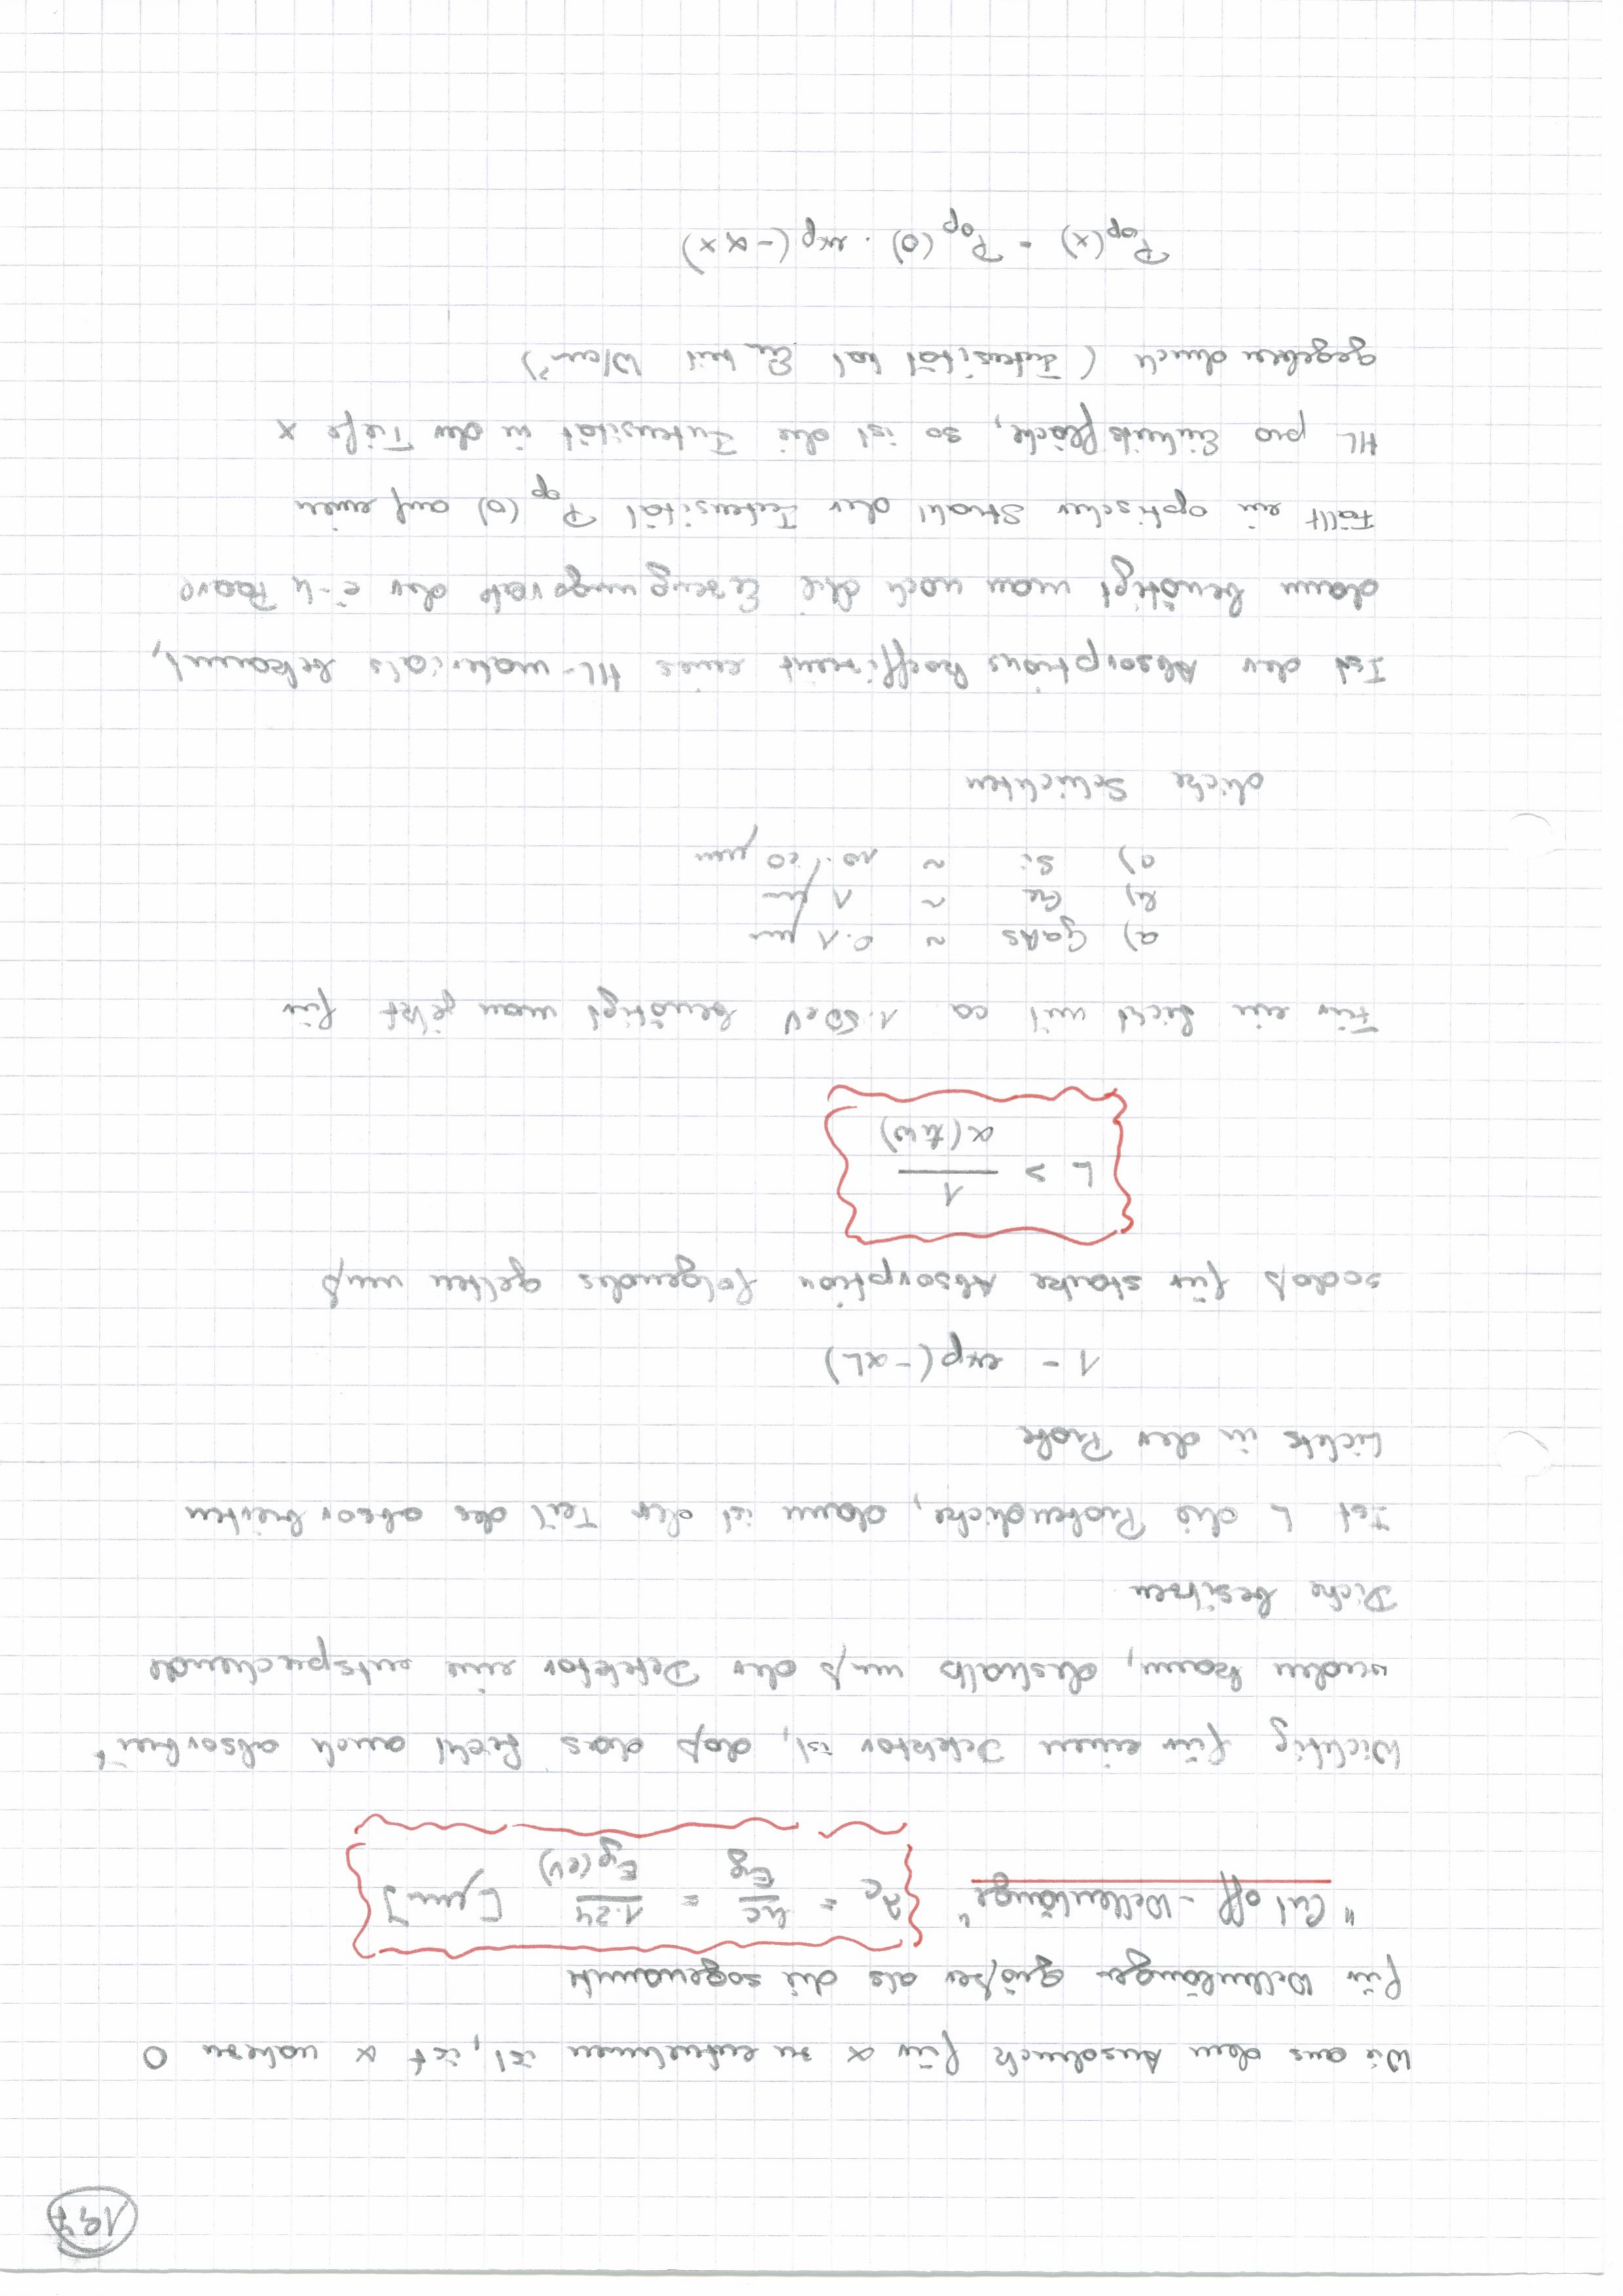 197
Wie aus dem Ausdruck für α zu entnehmen ist, ist α nahezu 0
für Wellenlängen größer als die sogenannte
"Cut off - Wellenlänge" λc = hc/Eg = 1.24/Eg(eV) [µm]
Wichtig für einen Detektor ist, daß das Licht auch absorbiert
werden kann, deshalb muß der Detektor eine entsprechende
Dicke besitzen
Ist L die Probendicke, dann ist der Teil des absorbierten
Lichts in der Probe
1 - exp(-αL)
sodaß für starke Absorption folgendes gelten muß
L > 1/α(ħω)
Für ein Licht mit ca 1.50eV benötigt man jetzt für
a) GaAs ~ 0.1 µm
b) Ge ~ 1 µm
c) Si ~ 10./20 µm
dicke Schichten
Ist der Absorptionskoeffizient eines HL-materials bekannt,
dann benötigt man noch die Erzeugungsrate der e-h Paare
Fällt ein optischer Strahl der Intensität Pop(0) auf einen
HL pro Einheitsfläche, so ist die Intensität in der Tiefe x
gegeben durch (Intensität hat Einheit W/cm²)
Pop(x) = Pop(0) · exp(-αx)